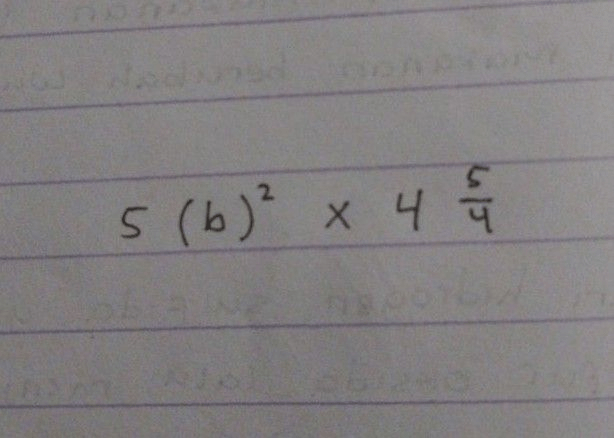 5 (b)² x 4 5/4